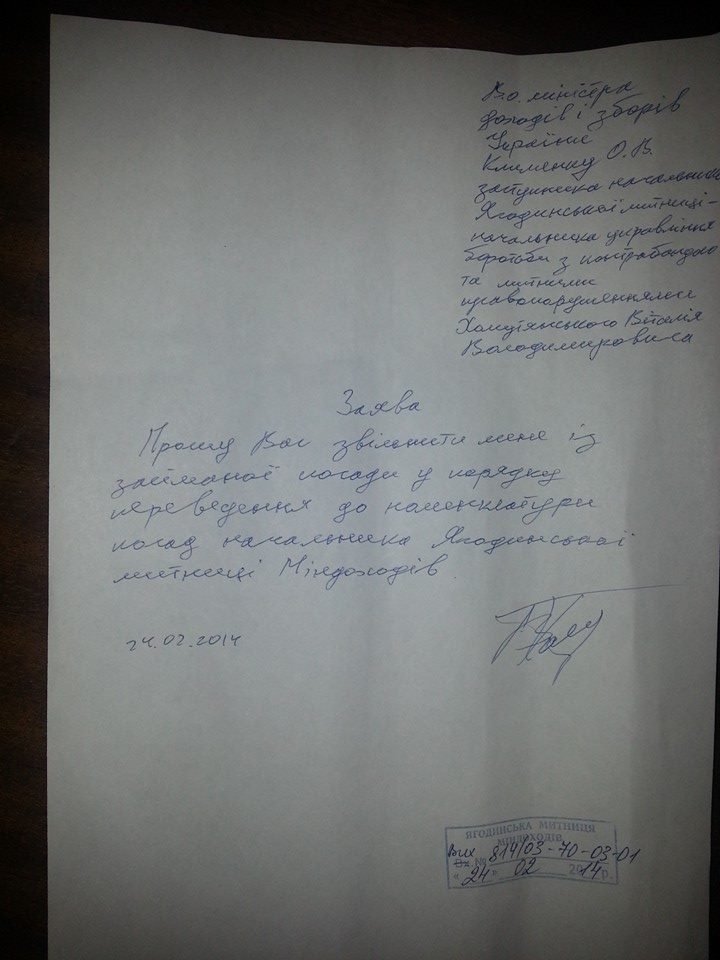 В.о. міністра
доходів і зборів
України
Клименку О.В.
заступника начальника
Ягодинської митниці -
начальника управління
боротьби з контрабандою
та митними
правопорушеннями
Хомутянського Віталія
Володимировича
Заява
Прошу Вас звільнити мене із
займаної посади у порядку
переведення до номенклатури
посад начальника Ягодинської
митниці Міндоходів.
24.02.2014
ЯГОДИНСЬКА МИТНИЦЯ
МІНДОХОДІВ
Вих
Вх. № 814/03-70-03-01
"24" 02 2014 р.